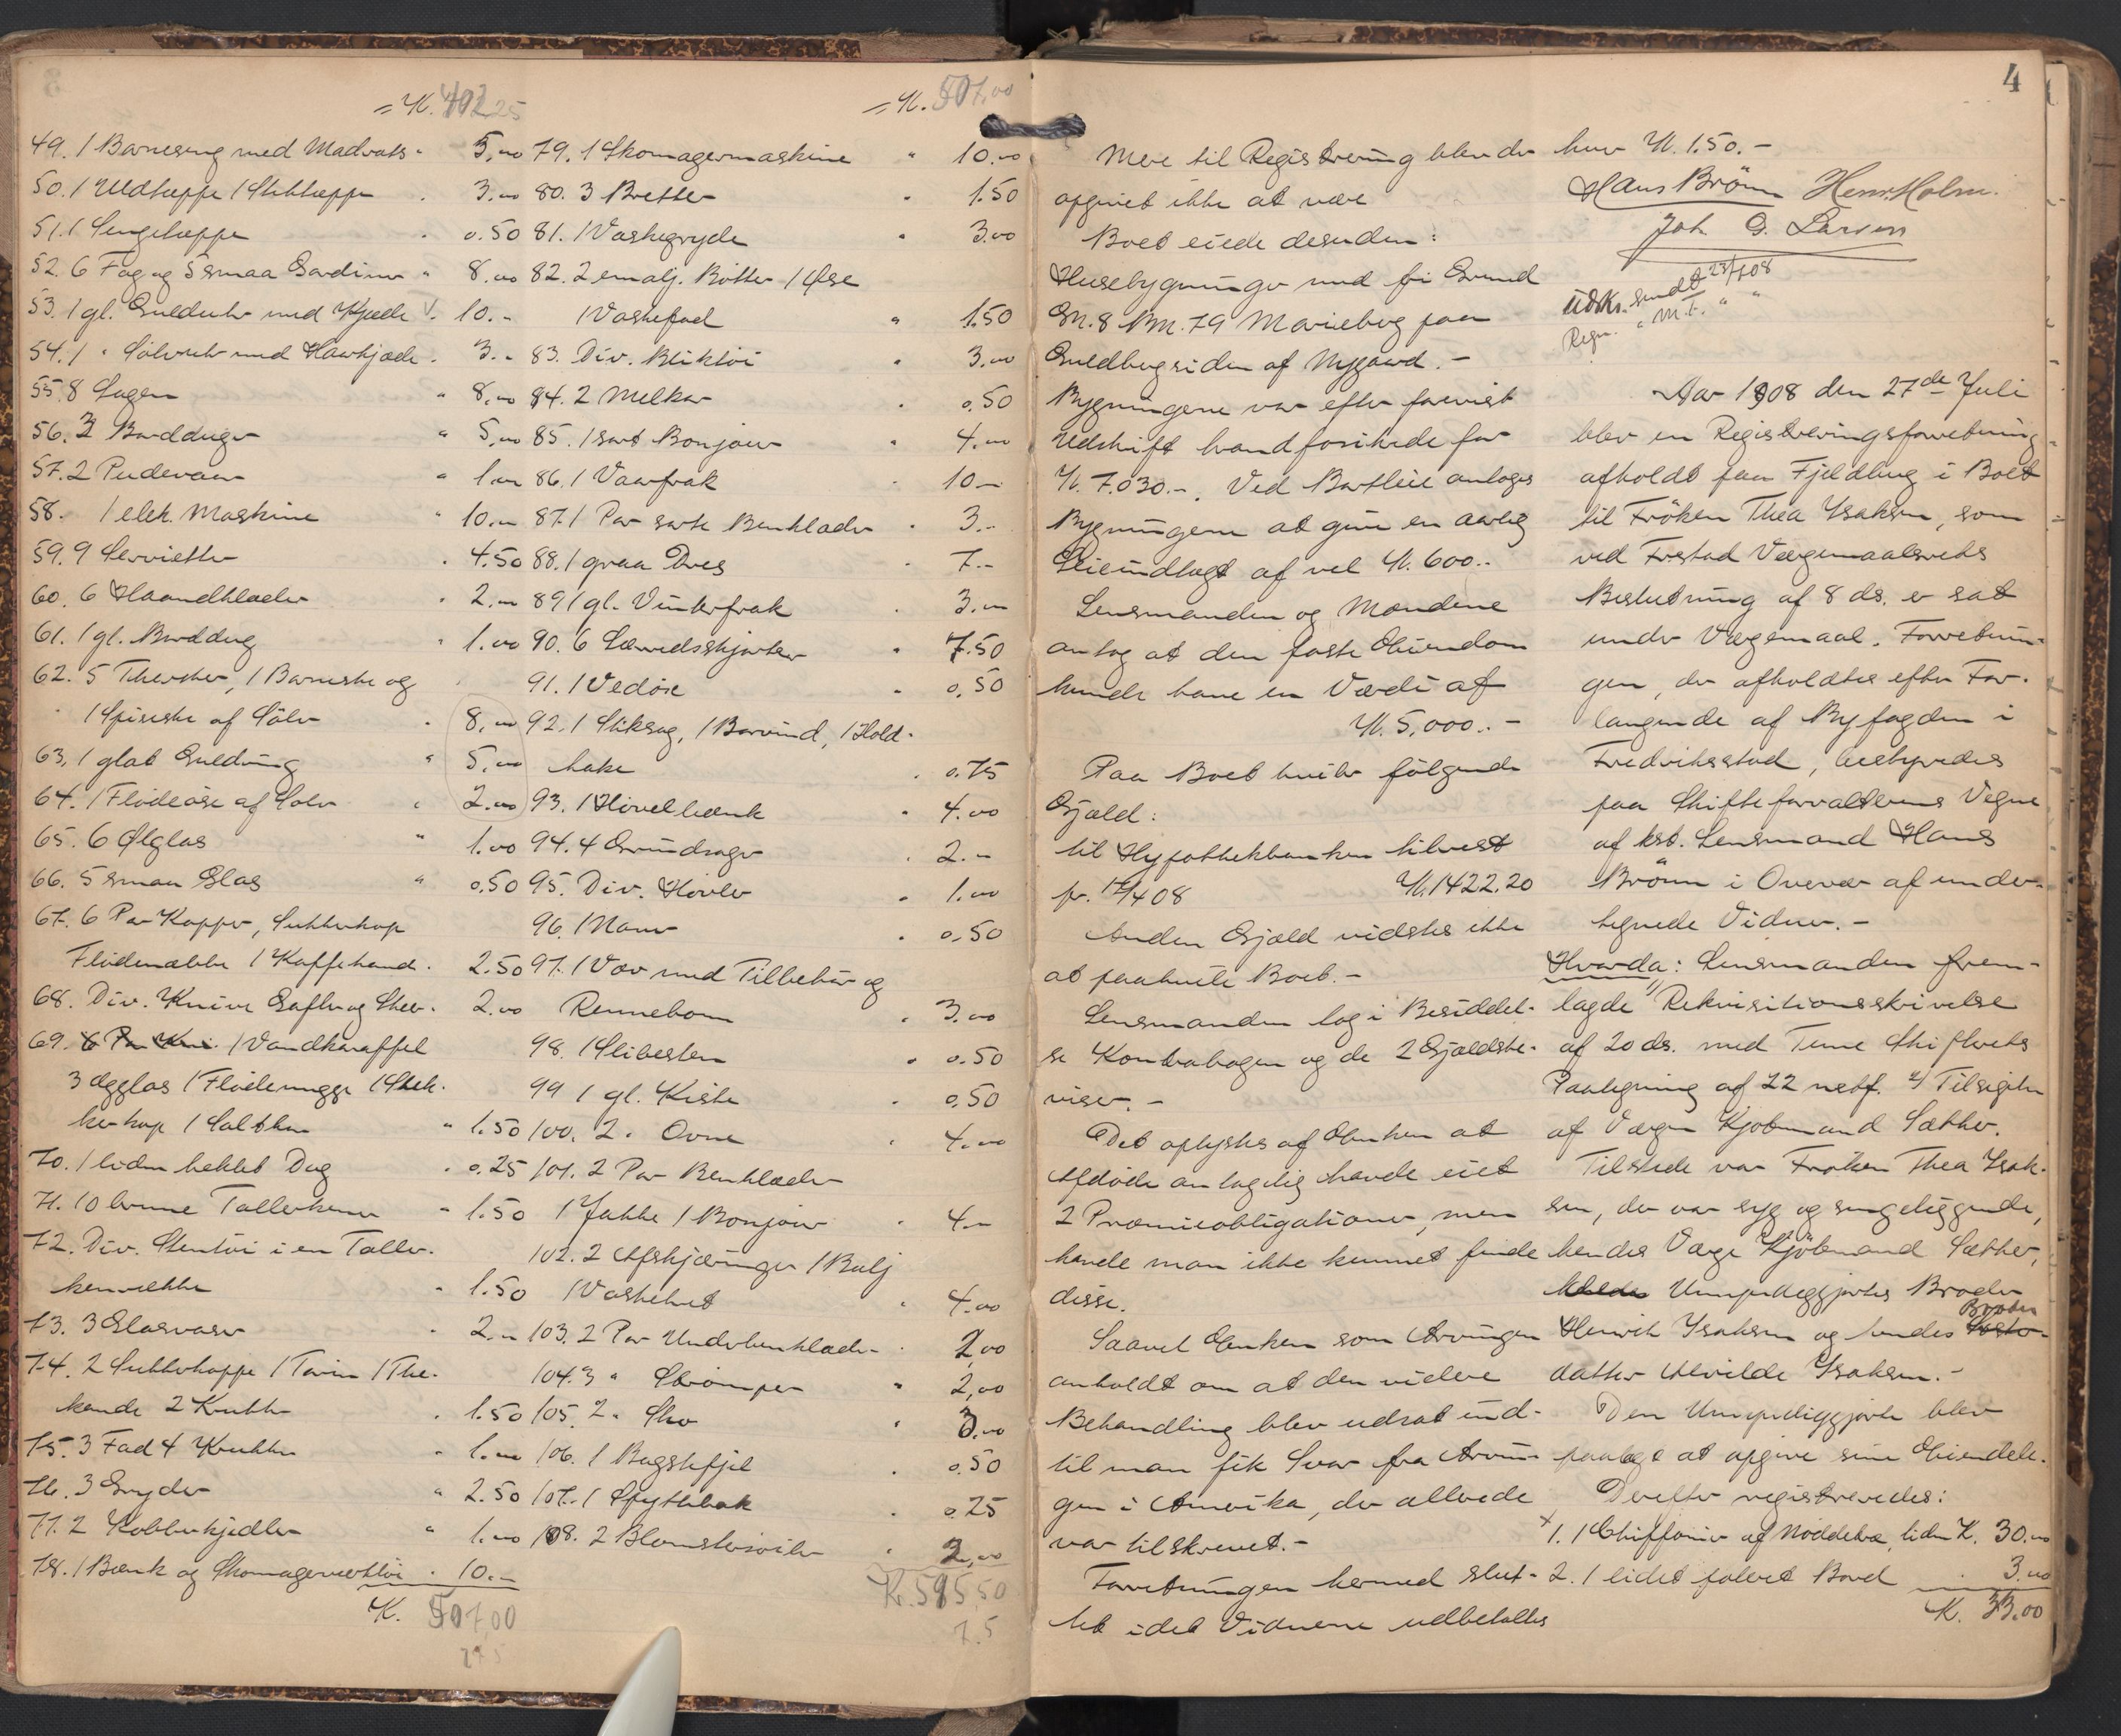 = K. 402.25
49. 1 Barneseng med Madrats " 5.00
50. 1 Uldtæppe 1 Stikteppe " 3.00
51. 1 Sengetæppe " 0.50
52. 6 Fag og 5 smaa Gardiner " 8.00
53. 1 gl. Gulduhr med Kjæde " 10.-
54. 1 " Sølvuhr med Haarkjæde " 3.-
55. 8 Lagen " 8.00
56. 3 Bordduger " 5.00
57. 2 Pudevaar " 1.00
58. 1 elek. Maskine " 10.00
59. 9 Servietter " 4.50
60. 6 Haandklæder " 2.00
61. 1 gl. Borddug " 1.00
62. 5 Theskeer, 1 Barneske og
1 Spiseske af Sölv " 8.00
63. 1 glat Guldring " 5.00
64. 1 Flödeöse af Sölv " 2.00
65. 6 Ølglas " 1.00
66. 5 smaa Glas " 0.50
67. 6 Par Kopper, Sukkerkop
Flödemukke 1 Kaffekand. 2.50
68. Div. Knive Gafler og Skeer. 2.00
69. 6 Par Kni. 1 Vandkaraffel
3 Ægglas 1 Flödemugge 1
kerkop 1 Saltkar " 1.50
70. 1 liden heklet Dug " 0.25
71. 10 brune Tallerkener " 1.50
72. Div. Stentöi i en Taller-
kenrække " 1.50
73. 3 Glasvaser " 2.00
74. 2 Sukkerkoppe 1 Terin 1 The-
kande 2 Krukker " 1.50
75. 3 Fad 4 Krukker " 1.00
76. 3 Gryder " 2.50
77. 2 Kobberkjedler " 1.00
78. 1 Bænk og Skomagerverktöi " 10.-
K. 507,00
= K. 507.00
79. 1 Skomagermaskine " 10.00
80. 3 Bretter " 1.50
81. 1 Vaskegryde " 3.00
82. 2 emalj. Bötter 1 Øse
1 Vaskefad " 1.50
83. Div. Bliktöi " 3.00
84. 2 Melkar " 0.50
85. 1 sort Bonjour " 4.00
86. 1 Vaarfrak " 10-
87. 1 Par sorte Benklæder " 3.-
88. 1 graa Dres " 7.-
89. 1 gl. Vinterfrak " 3.00
90. 6 Lærredsskjorter " 7.50
91. 1 Vedöxe " 0,50
92. 1 Stiksag, 1 Borvind, 1 Hold-
hake " 0.75
93. 1 Hövelbænk " 4.00
94. 4 Grindsager " 2.-
95. Div. Hövler " 1.00
96. 1 Naver " 0,50
97. 1 Væv med Tilbehör og
Rennebom " 3.00
98. 1 Slibesten " 0.50
99 1 gl. Kiste " 0,50
100. 2 " Ovne " 4.00
101. 2 Par Benklæder
1 Jakke 1 Bonjour " 4.-
102. 2 Afskjæringer 1 Balj
1 Vaskebret " 4.00
103. 2 Par Underbenklæder " 2,00
104. 3 " Strömper " 2,00
105. 2 " Sko " 3.00
106. 1 Bagstefjel " 0.50
107. 1 Spyttebak " 0.25
108. 2 Blomstersöiler " 2,00
Kr. 595,50
7.5
Mere til Registrering blev der
opgivet ikke at være
Boet eiede desuden:
Husebygninger med fri Grund
Gn. 8 Bn. 79 Marieborg paa
Guldbergsiden af Nygaard. -
Bygningerne var efter forevist
Udskrift brandforsikrede for
K. 7.030.-. Ved Bortleie antages
Bygningerne at give en aarlig
Leieindtægt af vel K. 600.-
Lensmanden og Mændene
antog at den faste Eiendom
kunde have en Værdi af
K. 5,000.-
Paa Boet hviler fölgende
Gjæld:
til Hypothekbanken tilrest
pr. 14/4 08 K. 1422.20
Anden Gjæld vidstes ikke
at paahvile Boet. -
Lensmanden tog i Besiddel-
se Kontrabogen og de 2 Gjældsbe-
viser. -
Det oplystes af Enken at
Afdöde antagelig havde eiet
2 Præmieobligationer, men
havde man ikke kunnet finde
disse.
Saavel Enken som Arvingen
anholdt om at den videre
Behandling blev udsat ind-
til man fik Svar fra Arvin-
gen i Amerika, der allerede
var tilskrevet. -
Forretningen hermed slut-
tet idet Vidnerne udbetaltes
4
hver K. 1.50. -
Hans Brönn Henr. Holm.
Joh G. Larsen
Udskr. sendt 28/7 08
Regn. " M.F. " "
Aar 1908 den 27de Juli
blev en Registreringsforretning
afholdt paa Fjeldberg i Boet
til Fröken Thea Ysaksen, som
ved Frstad Værgemaalsrets
Beslutning af 8 ds. er sat
under Værgemaal. Forretnin-
gen, der afholdtes efter For-
langende af Byfogden i
Fredriksstad, bestyredes
paa Skifteforvalterens Vegne
af kst. Lensmand Hans
Brönn i Overvær af under-
tegnede Vidner. -
Hvorda: Lensmanden frem-
lagde 1/ Rekvisitionsskrivelse
af 20 ds. med Tune Skifterets
Paategning af 22 næstf. 2/ Tilsigelse
af Værgen Kjöbmand Sæther.
Tilstede var Fröken Thea Ysak-
sen, der var syg og sengeliggende,
hendes Værge Kjöbmand Sæther,
Umyndiggjortes Broder
Henrik Ysaksen og hendes Broder
datter Alvilde Ysaksen. -
Den Umyndiggjorte blev
paalagt at opgive sine Eiendele.
Derefter registreredes:
1. 1 Chiffonier af Nöddetræ, liden K. 30.00
2. 1 lidet poleret Bord " 3.00
K. 33.00